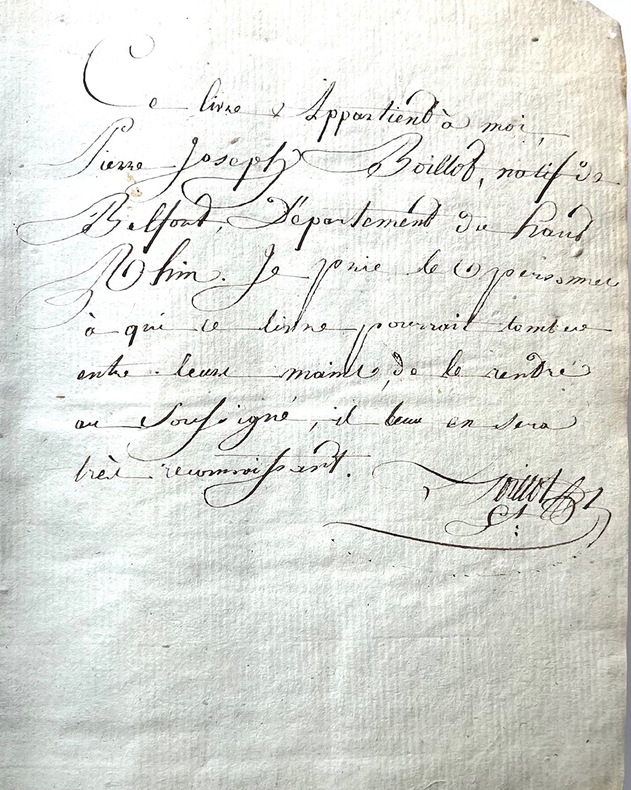 Ce livre Appartient à moi,
Pierre Joseph Boillot, natif de
Belfort, Département du haut
Rhin. Je prie les personnes
à qui ce livre pourrait tomber
entre leurs mains, de le rendre
au Soussigné, il leur en sera
très reconnoissant.
Boillot